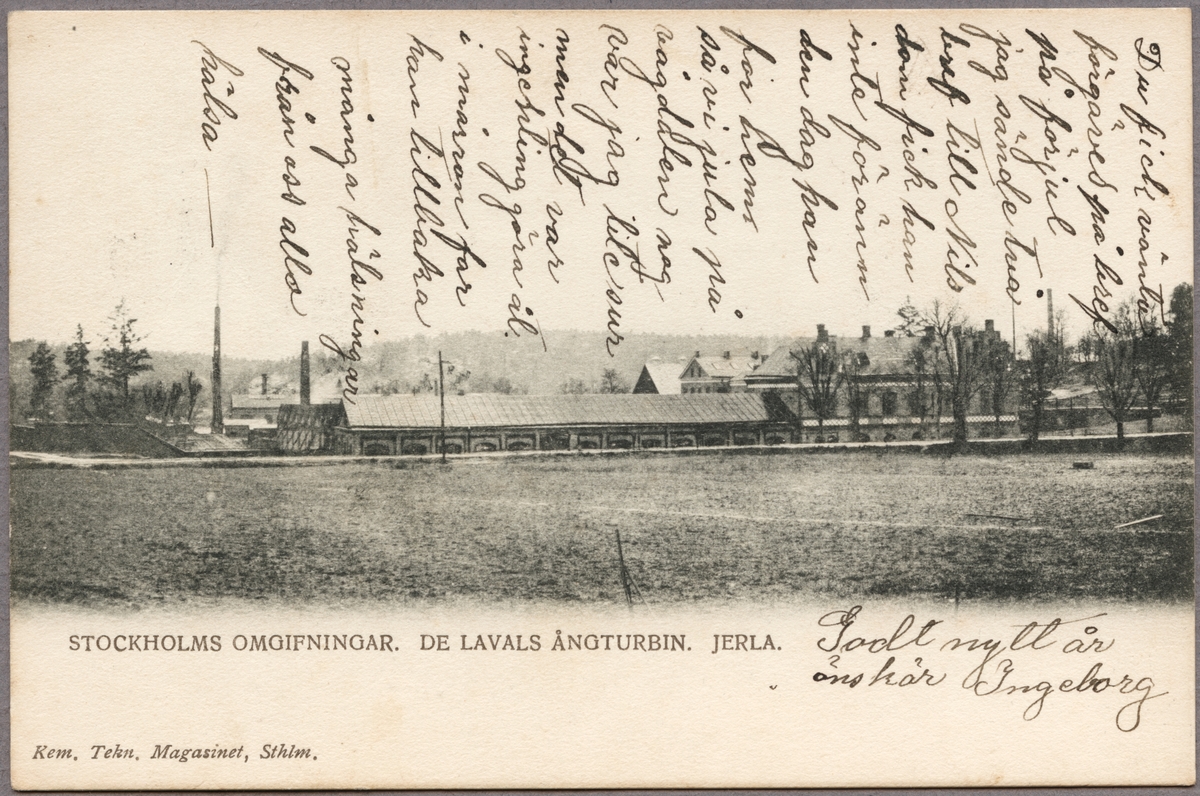 Du fick vänta
förgäves på bref
på för jul
jag sände två
bref till Nils
dom fick han
inte föränn
den dag han
for hem
så vi jula på
vågdalen nog
var jag litt sur
men det var
ingenting göra åt.
i mårron far
han tillbaka
många hälsningar
från oss alla
hälsa
STOCKHOLMS OMGIFNINGAR. DE LAVALS ÅNGTURBIN. JERLA.
Godt nytt år
önskar Ingeborg
Kem. Tekn. Magasinet, Sthlm.